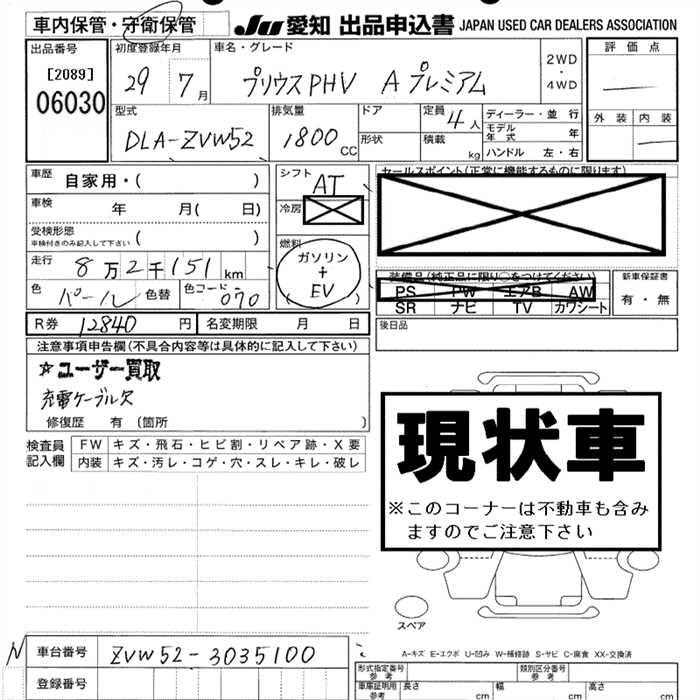 車内保管・守衛保管
JU 愛知 出品申込書 JAPAN USED CAR DEALERS ASSOCIATION
出品番号
[2089]
06030
初度登録年月
29 7月
車名・グレード
プリウスPHV Aプレミアム
2WD
・
4WD
評価点
外装 内装
型式
DLA-ZVW52
排気量
1800 CC
ドア
形状
定員 4人
積載 kg
ディーラー・並行
モデル年式 年
ハンドル 左・右
車歴 自家用・( )
車検 年 月( 日)
受検形態
車検付きのみ記入して下さい ( )
走行 8万2千151km
色 パール 色替 色コード 070
シフト AT
冷房
燃料
ガソリン
+
EV
セールスポイント(正常に機能するものに限ります)
装備品(純正品に限り○をつけてください)
PS PW エアB AW
SR ナビ TV カワシート
新車保証書
有・無
R券 12840円 名変期限 月 日
後日品
注意事項申告欄(不具合内容等は具体的に記入して下さい)
☆ユーザー買取
充電ケーブル欠
修復歴 有 (箇所 )
検査員記入欄
FW キズ・飛石・ヒビ割・リペア跡・X要
内装 キズ・汚レ・コゲ・穴・スレ・キレ・破レ
現状車
※このコーナーは不動車も含み
ますのでご注意下さい
スペア
A-キズ E-エクボ U-凹み W-補修跡 S-サビ C-腐食 XX-交換済
N 車台番号 ZVW52-3035100
登録番号
形式指定番号 参考
類別区分番号 参考
車庫証明用 参考 長さ cm 幅 cm 高さ cm